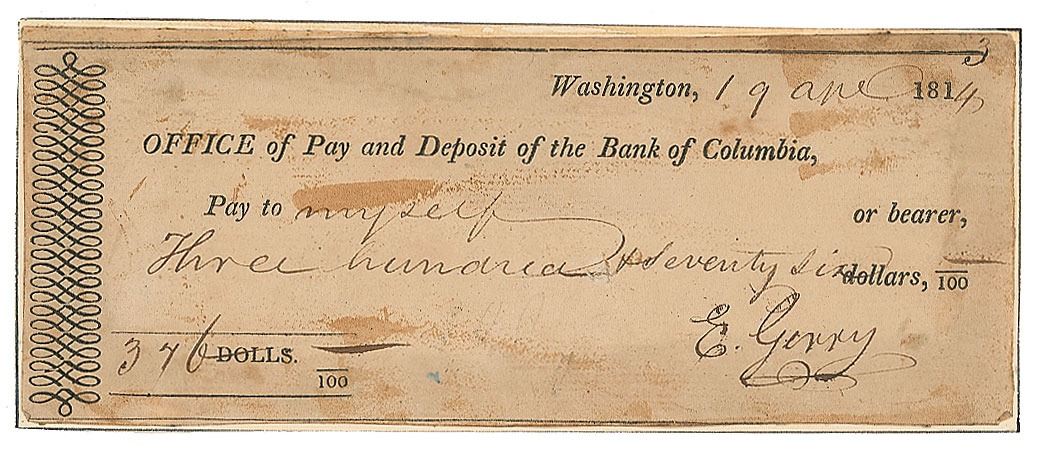 3
Washington, 19 ape 1814
OFFICE of Pay and Deposit of the Bank of Columbia,
Pay to myself or bearer,
Three hundred & seventy six dollars, 100
E. Gerry
376 DOLLS. 100